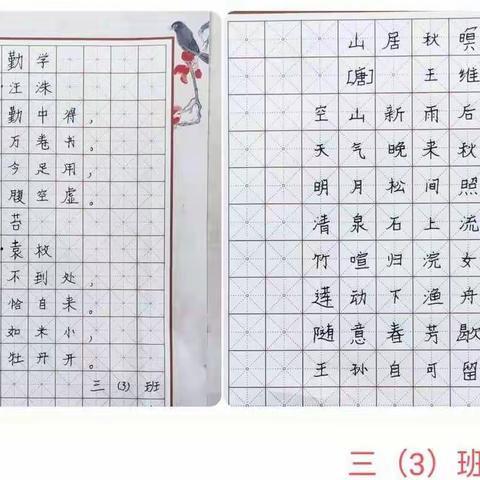 勤学
·汪洙
勤中得，
万卷书。
今足用，
腹空虚。
苔
·袁枚
不到处，
恰自来。
如米小，
牡丹开。
三(3)班
山居秋暝
[唐] 王维
空山新雨后
天气晚来秋
明月松间照
清泉石上流
竹喧归浣女
莲动下渔舟
随意春芳歇
王孙自可留
三（3）班